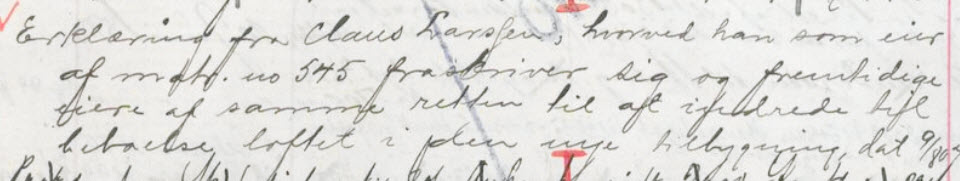 Erklæring fra Claus Larssen, hvorved han som eier
af matr. no 545 fraskriver sig og fremtidige
eiere af samme retten til at indrede til
beboelse loftet i den nye tilbygning, dat 9/80